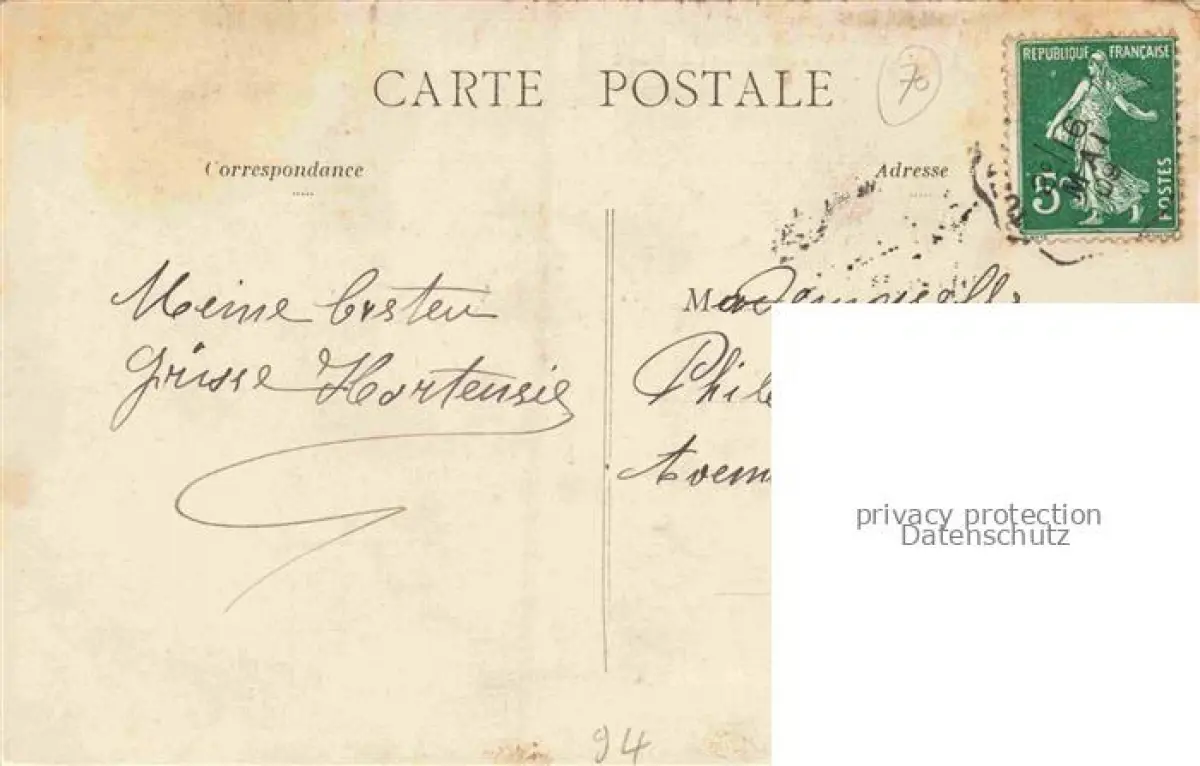 CARTE POSTALE
70
RÉPUBLIQUE FRANÇAISE
5
POSTES
6
MAI
09
Correspondance
Adresse
Meine besten
Grüsse Hortensie
Mademoiselle
privacy protection
Datenschutz
94